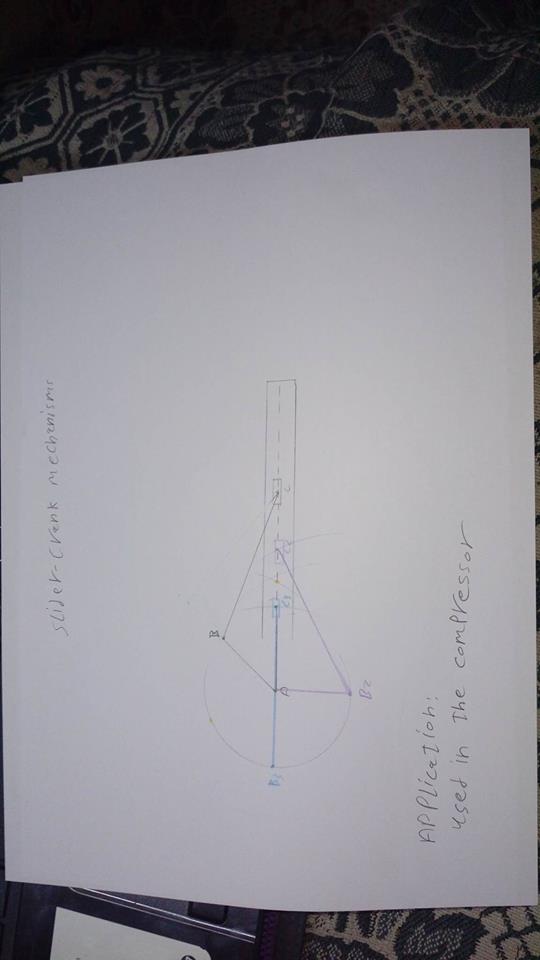 slider-crank mechanisms
B
C
C2
C3
A
B3
B2
APPlication:
used in the compressor